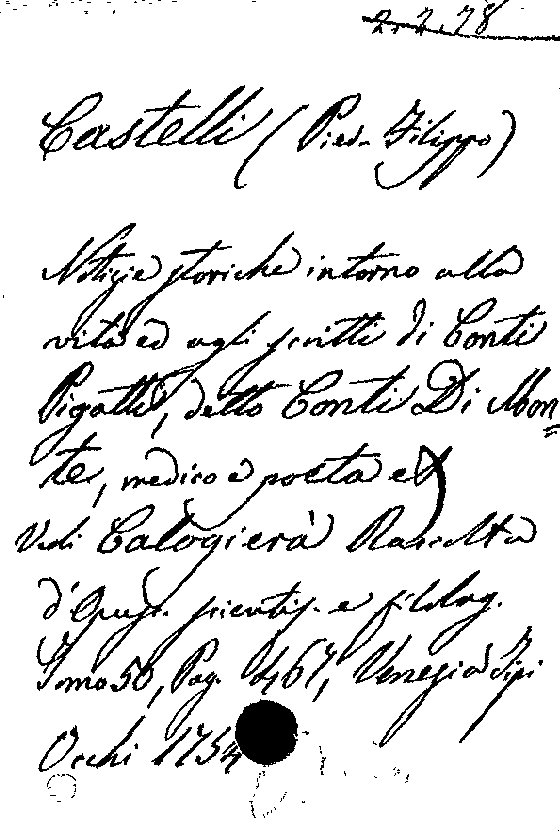 2.2.78
Castelli (Pier Filippo)
Notizie storiche intorno alla
vita ed agli scritti di Conti
Pigatti, detto Conti Di Mon=
te, medico e poeta
Vedi Calogierà Raccolta
d'Opusc. scientif. e filolog.
Tomo 50, Pag. 467, Venezia Tipi
Occhi 1754